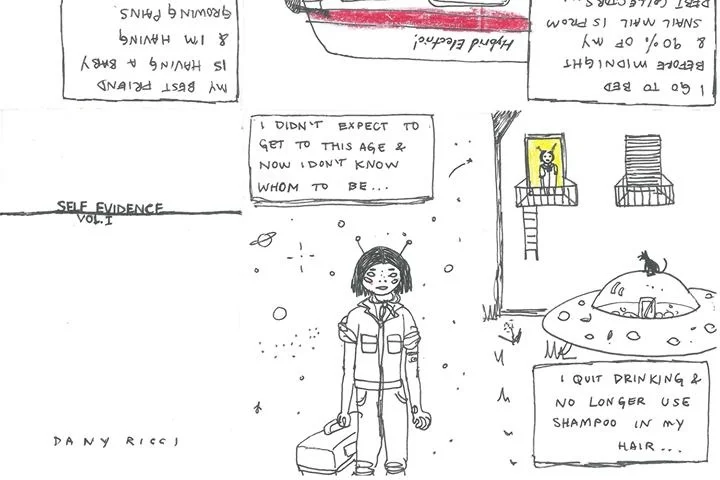 MY BEST FRIEND
IS HAVING A BABY
& I'M HAVING
GROWING PAINS
Hybrid Electric!
I GO TO BED
BEFORE MIDNIGHT
& 90% OF MY
SNAIL MAIL IS FROM
DEBT COLLECTORS...
SELF EVIDENCE
VOL. I
DANY RICCI
I DIDN'T EXPECT TO
GET TO THIS AGE &
NOW I DON'T KNOW
WHOM TO BE...
I QUIT DRINKING &
NO LONGER USE
SHAMPOO IN MY
HAIR...